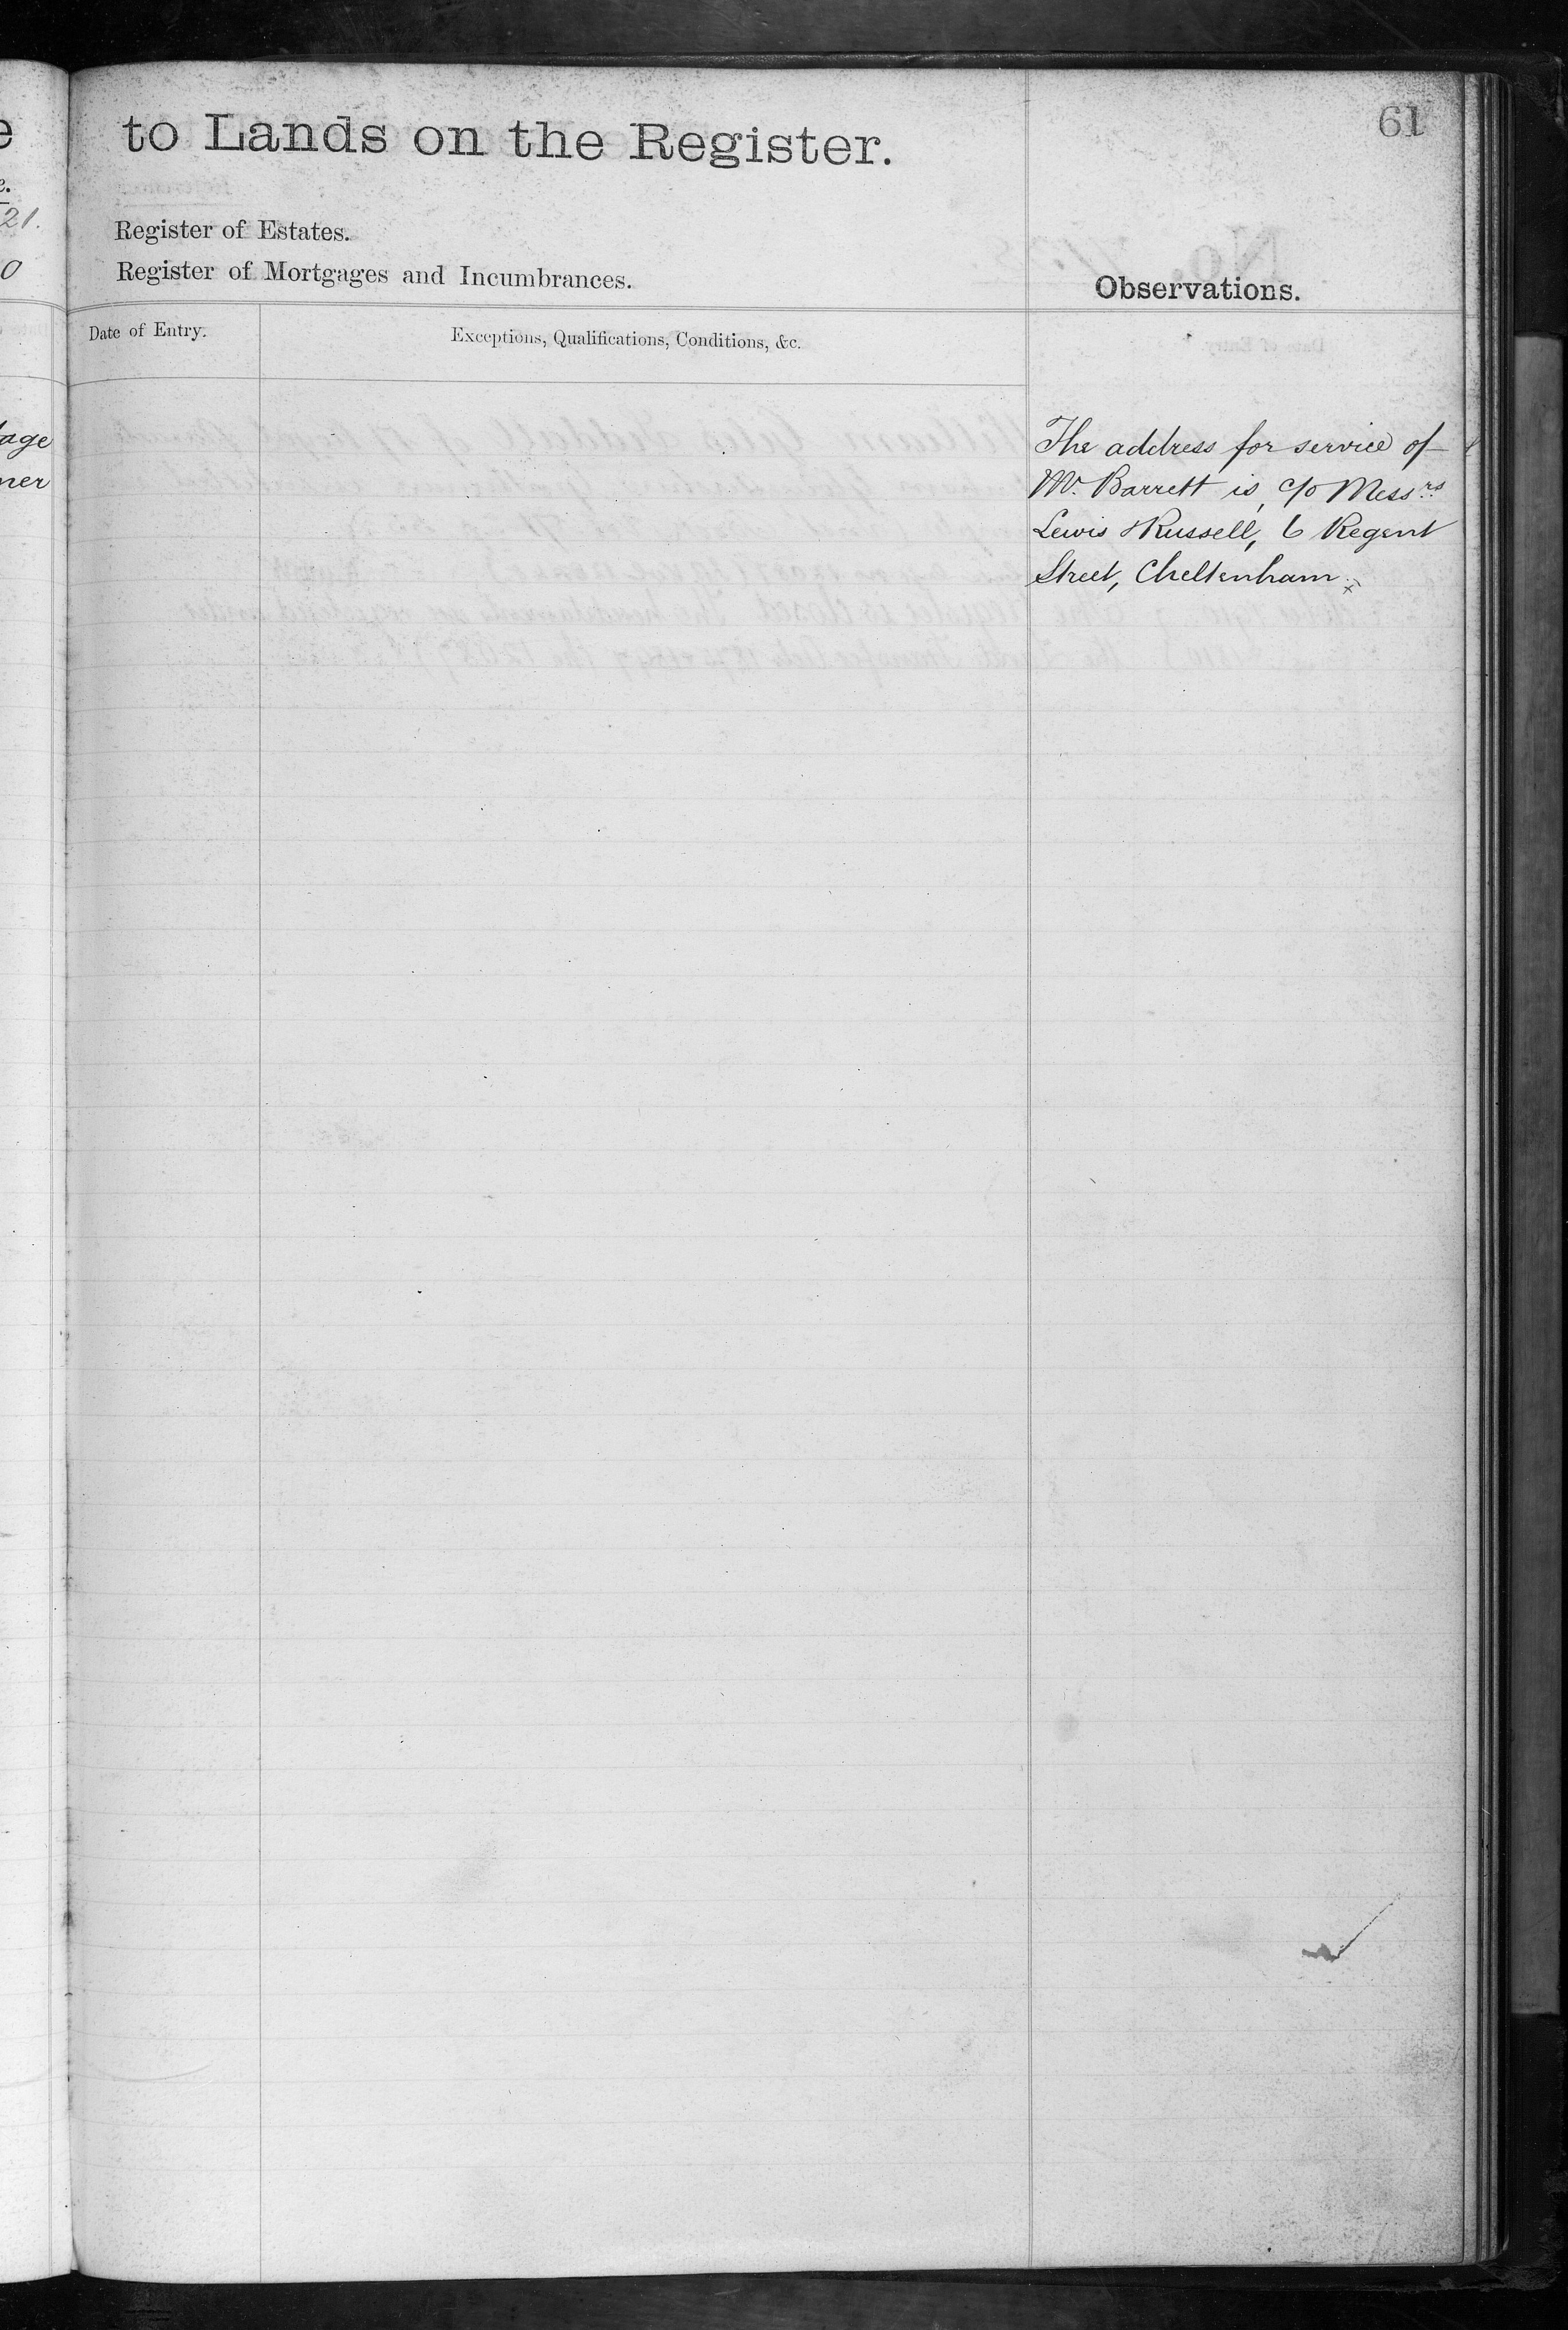 61
to Lands on the Register.
Register of Estates.
Register of Mortgages and Incumbrances.
Observations.
Date of Entry.
Exceptions, Qualifications, Conditions, &c.
The address for service of
Mr. Barrett is, c/o Messrs
Lewis & Russell, 6 Regent
Street, Cheltenham.
21.
0